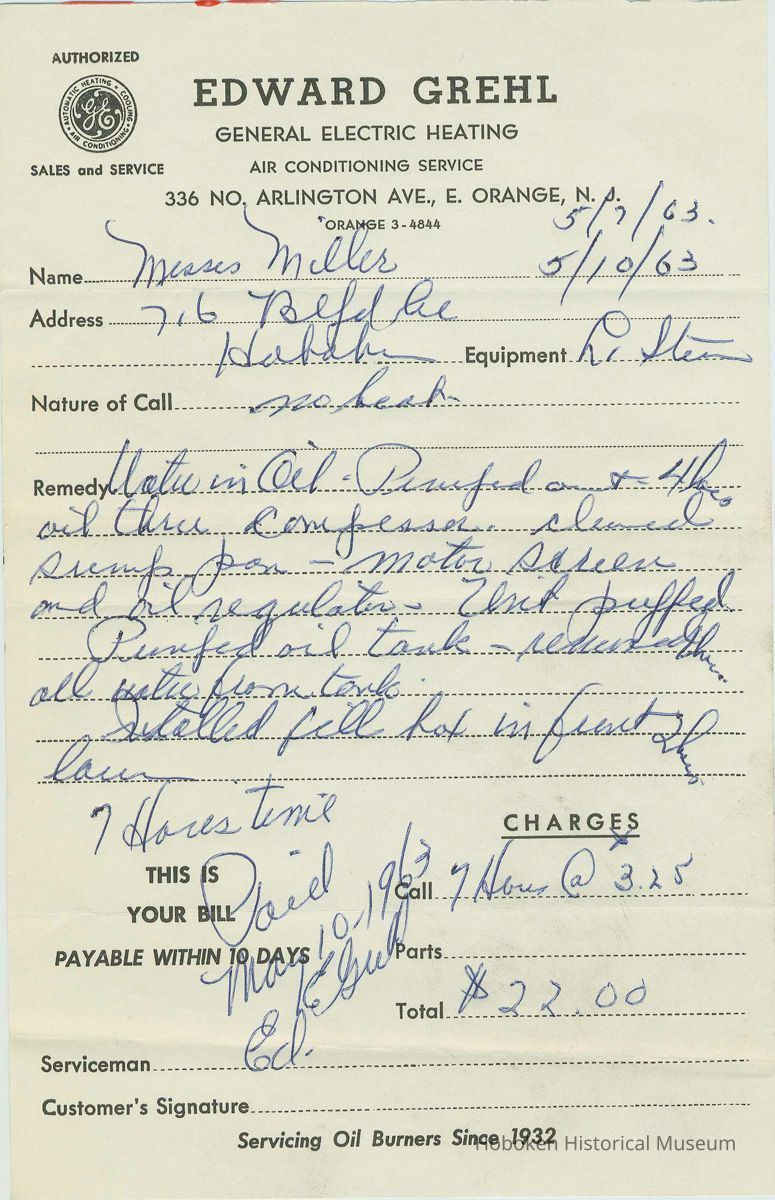 AUTHORIZED
AUTOMATIC HEATING • COOLING • AIR CONDITIONING •
GE
SALES and SERVICE
EDWARD GREHL
GENERAL ELECTRIC HEATING
AIR CONDITIONING SERVICE
336 NO. ARLINGTON AVE., E. ORANGE, N. J.
ORANGE 3-4844
5/7/63.
Name Misses Miller 5/10/63
Address 716 Blfd
Hoboken Equipment
Nature of Call no heat
Remedy Water in Oil - Pumped out 4 hrs
oil thru compressor. cleaned
sump pan - motor screen
and oil regulator - Unit puffed
Pumped oil tank - removed
all water from tank.
Installed fill box in front 2 hrs
lawn
7 Hours time
CHARGES
THIS IS
YOUR BILL
PAYABLE WITHIN 10 DAYS
Paid
May 10-1963
E Grehl
Call 7 Hours @ 3.25
Parts
Total $22.00
Serviceman Ed.
Customer's Signature
Servicing Oil Burners Since 1932
Hoboken Historical Museum